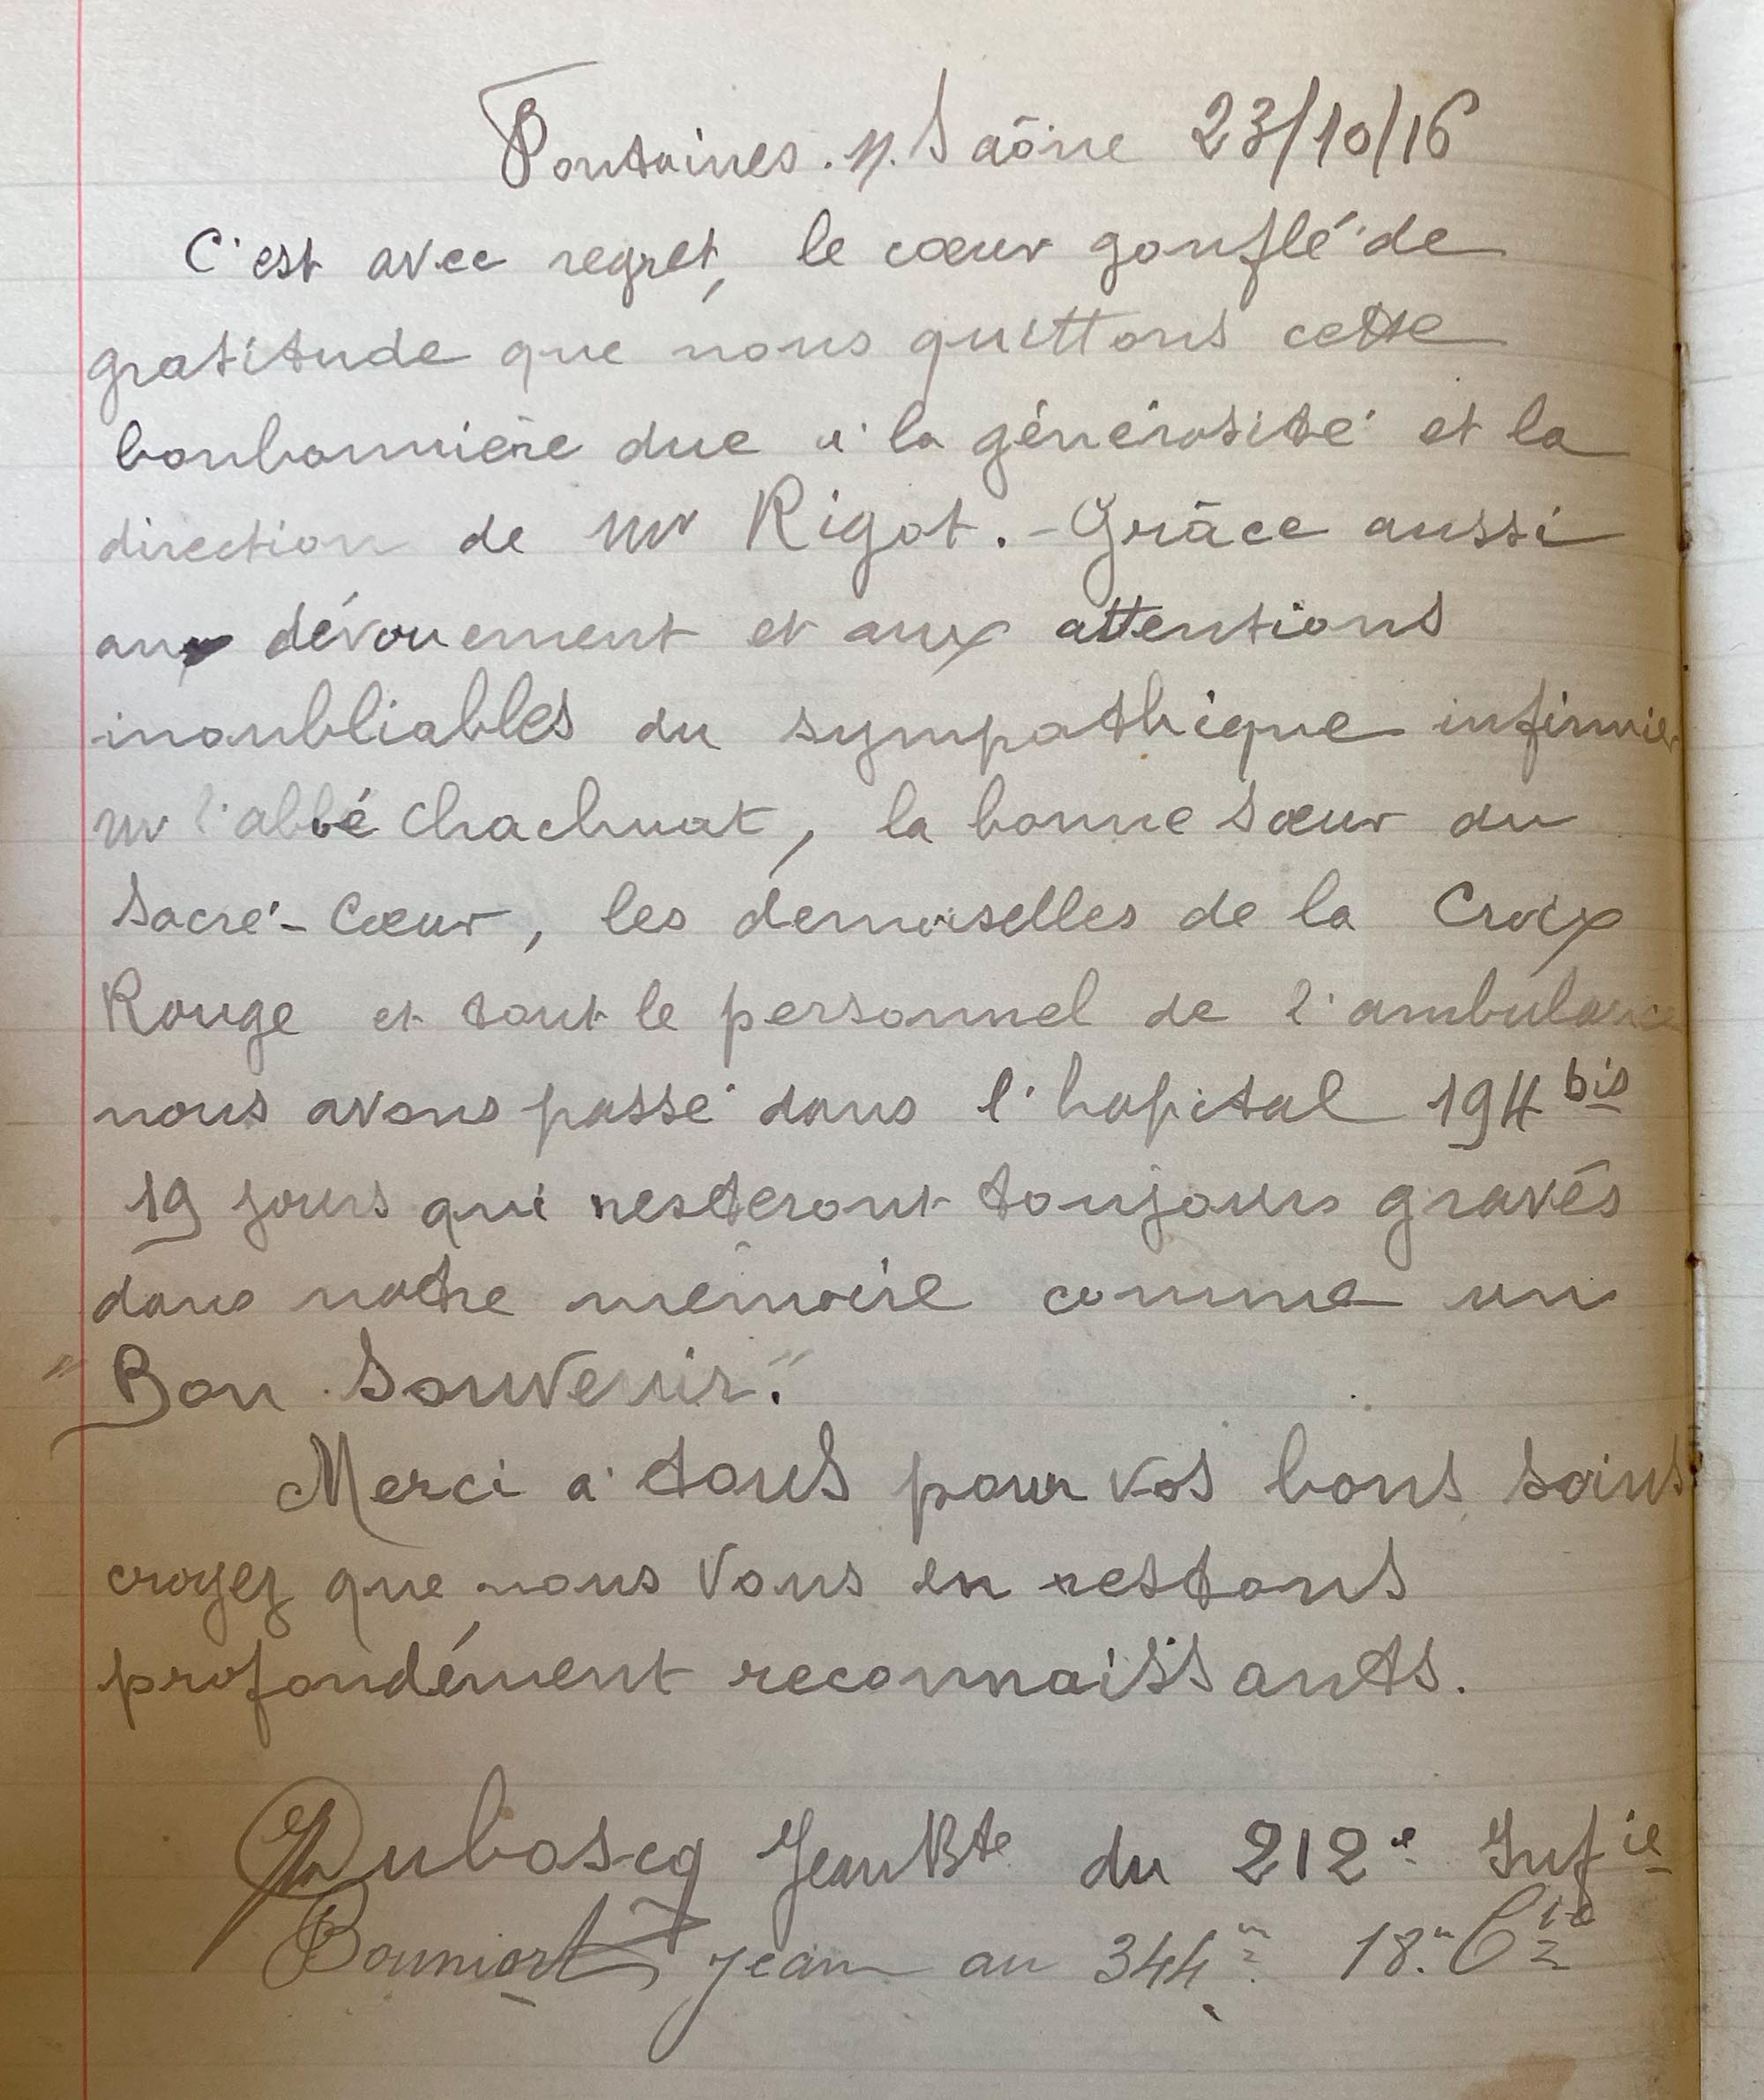 Fontaines. s/. Saône 23/10/16
C'est avec regret, le cœur gonflé de
gratitude que nous quittons cette
bonbonnière due à la générosité et la
direction de Mr Rigot. - Grâce aussi
aux dévouement et aux attentions
inoubliables du sympathique infirmier
Mr l'abbé Chachuat, la bonne sœur du
Sacré-Cœur, les demoiselles de la Croix
Rouge et tout le personnel de l'ambulance
nous avons passé dans l'hopital 194 bis
19 jours qui resteront toujours gravés
dans notre mémoire comme un
"Bon Souvenir."
Merci à tous pour vos bons soins
croyez que nous vous en restons
profondément reconnaissants.
Duboscq Jean Bte du 212e Infie
Jean au 344e 18e Cie